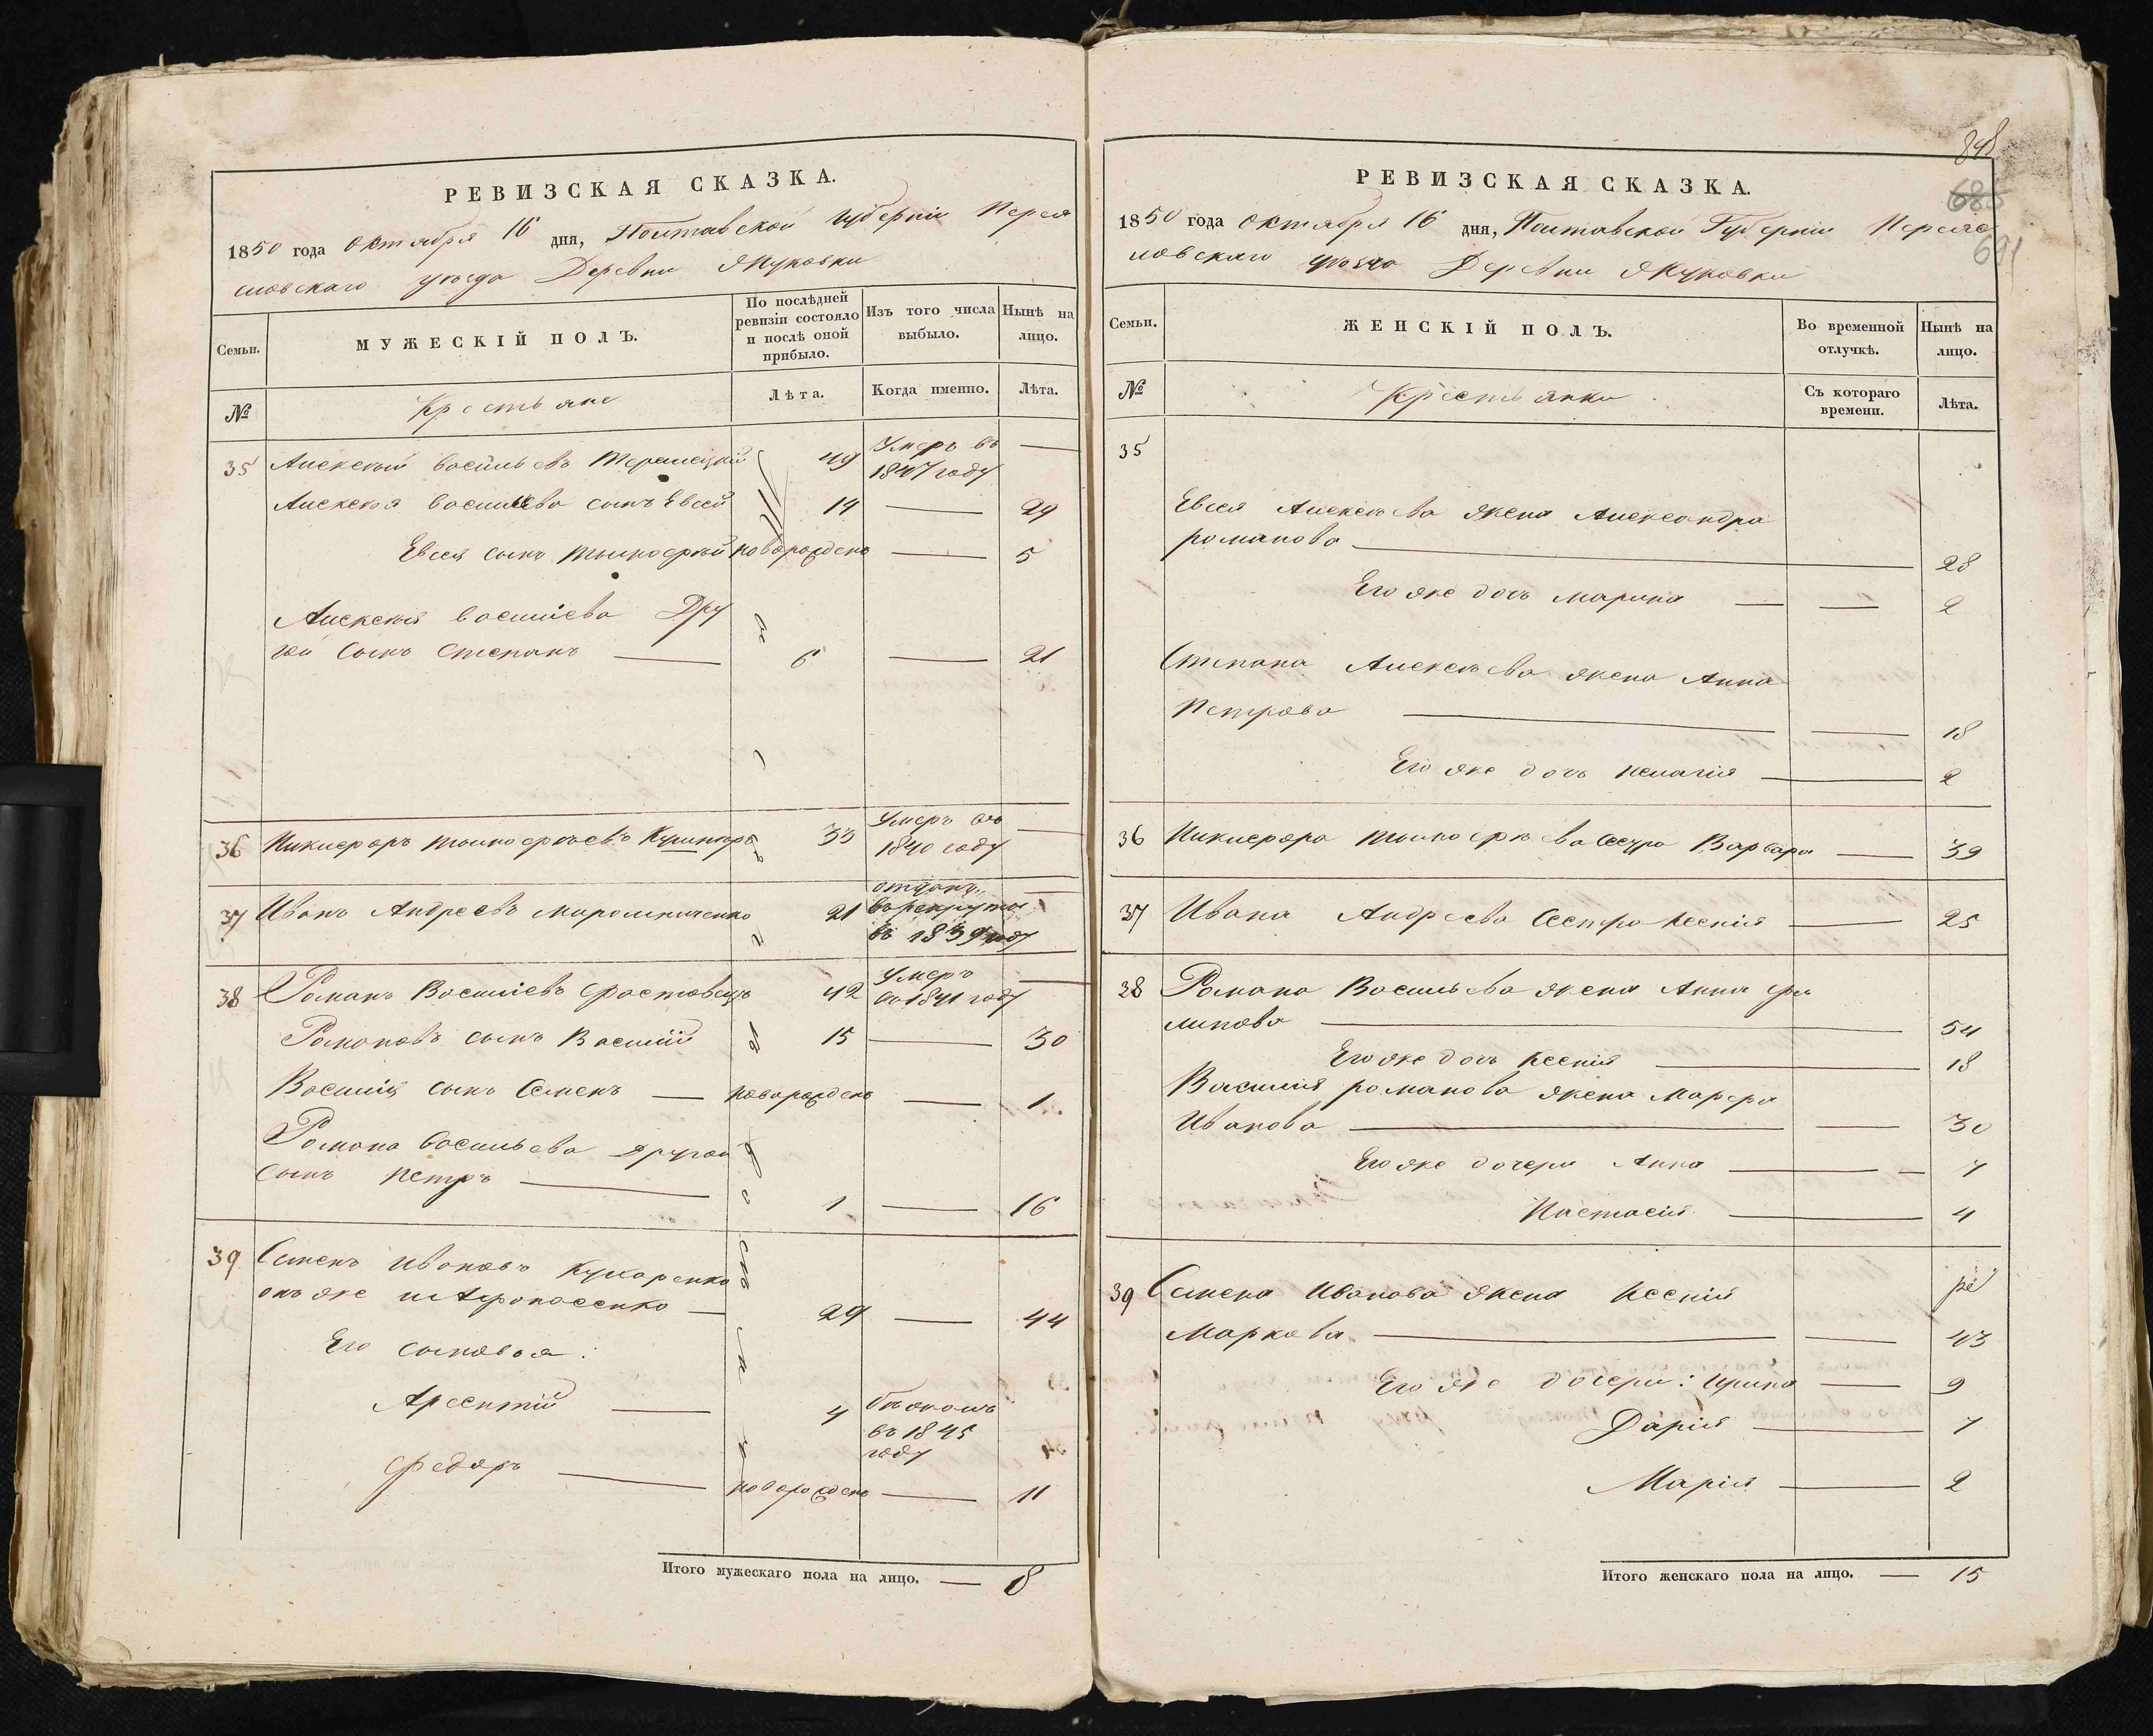 РЕВИЗСКАЯ СКАЗКА.
1850 года Октября 16 дня, Полтавской Губерніи Перея
словскаго уѣзда Деревни Якуковки
Семьи.
МУЖЕСКІЙ ПОЛЪ.
По послѣдней ревизіи состояло и послѣ оной прибыло.
Изъ того числа выбыло.
Нынѣ на лицо.
№
Крестьяне
Лѣта.
Когда именно.
Лѣта.
35 Алексѣй Васильевъ 49 Умеръ въ —
1847 году
Алексѣя Васильева сынъ Евсей 14 — 29
Евсея сынъ Тимофей новорожденъ — 5
Алексѣя Васильева Дру
гой Сынъ Степанъ — 6 — 21
36 Никифоръ Тимофѣевъ 33 Умеръ въ —
1840 году
37 Иванъ Андреевъ Мирошниченко 21 отданъ —
въ рекруты
въ 1839 году
38 Романъ Васильевъ Фастовецъ 42 Умеръ —
въ 1841 году
Романовъ сынъ Василій 15 — 30
Василія сынъ Семенъ — новорожденъ — 1
Романа Васильева другой
сынъ Петръ — 1 — 16
39 Семенъ Ивановъ Кухаренко
онъ же и Афонасенко — 29 — 44
Его сыновья:
Арсентій — 4 бѣжалъ
въ 1845
году
Федоръ — новорожденъ — 11
Итого мужескаго пола на лицо. — 8
848
685
691
РЕВИЗСКАЯ СКАЗКА.
1850 года Октября 16 дня, Полтавской Губерніи Перея
словскаго уѣзда Деревни Якуковки
Семьи.
ЖЕНСКІЙ ПОЛЪ.
Во временной отлучкѣ.
Нынѣ на лицо.
№
Крестьянки
Съ котораго времени.
Лѣта.
35
Евсея Алексѣева жена Александра
Романова — 28
Его же дочь Марина — — 2
Степана Алексѣева жена Анна
Петрова — — 18
Его же дочь Пелагія — 2
36 Никифора Тимофѣева Сестра Варвара — 39
37 Ивана Андреева Сестра Ксенія — 25
38 Романа Васильева жена Анна Фи
липова — 54
Его же дочь Ксенія — 18
Василія Романова жена Марфа
Иванова — — 30
Его же дочери Анна — — 7
Настасія — 4
39 Семена Иванова жена Ксенія
Маркова — — 43
Его же дочери: Ирина — 9
Дарія — 7
Марія — 2
Итого женскаго пола на лицо. — 15